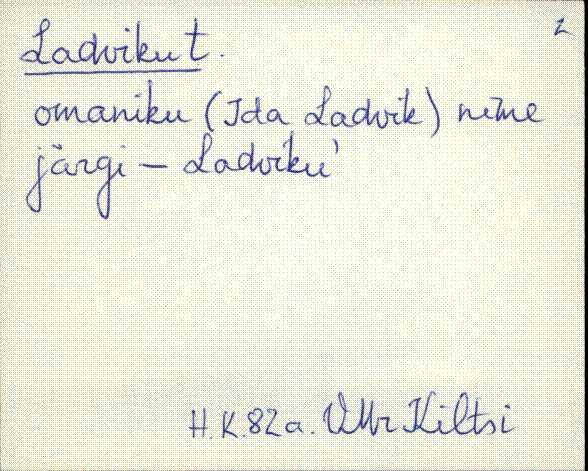 2
Ladviku t.
omaniku (Ida Ladvik) nime
järgi – Ladviku'
H.K. 82a. VMr Kiltsi